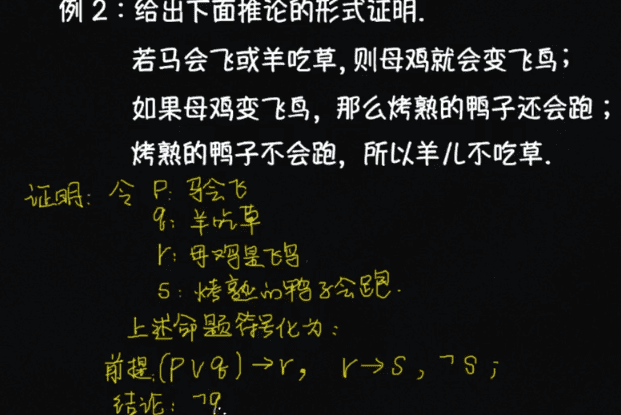 例2：给出下面推论的形式证明.
若马会飞或羊吃草,则母鸡就会变飞鸟；
如果母鸡变飞鸟，那么烤熟的鸭子还会跑；
烤熟的鸭子不会跑，所以羊儿不吃草.
证明：令 P：马会飞
q：羊吃草
r：母鸡是飞鸟
s：烤熟的鸭子会跑.
上述命题符号化为：
前提：(P∨q)→r， r→s，¬s；
结论：¬q